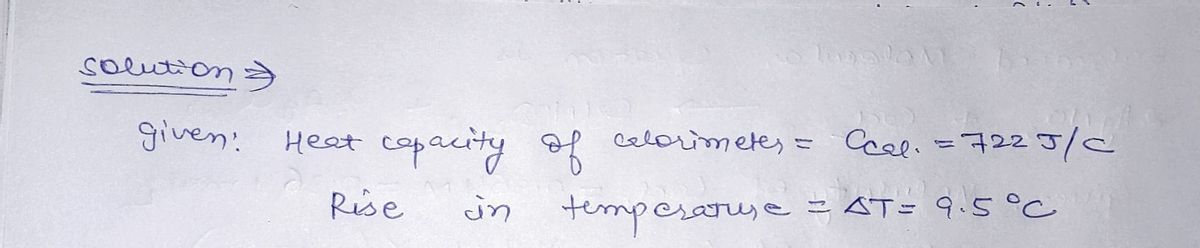 solution ⇒
given: Heat capacity of calorimeter = Ccal. = 722 J/C
Rise in temperature = ΔT = 9.5 °C